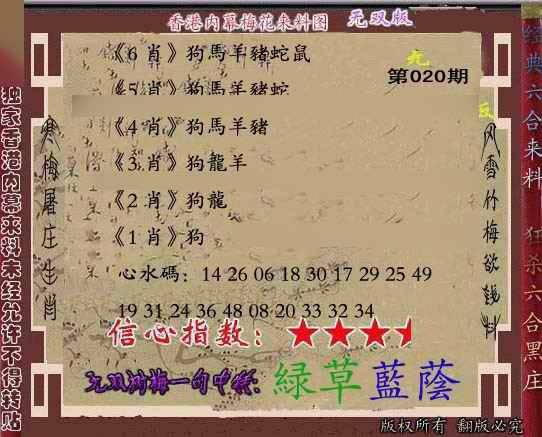 香港内幕梅花来料图 无双版
《6 肖》狗馬羊豬蛇鼠
第020期
《5 肖》狗馬羊豬蛇
《4 肖》狗馬羊豬
《3 肖》狗龍羊
《2 肖》狗龍
《1 肖》狗
心水碼：14 26 06 18 30 17 29 25 49
19 31 24 36 48 08 20 33 32 34
信心指数：★★★
无双狗梅一句中特：綠草藍蔭
版权所有 翻版必究
独家香港内幕来料未经允许不得转贴
寒梅屠庄生肖
风雪竹梅欲钱料
经典六合来料 狂杀六合黑庄